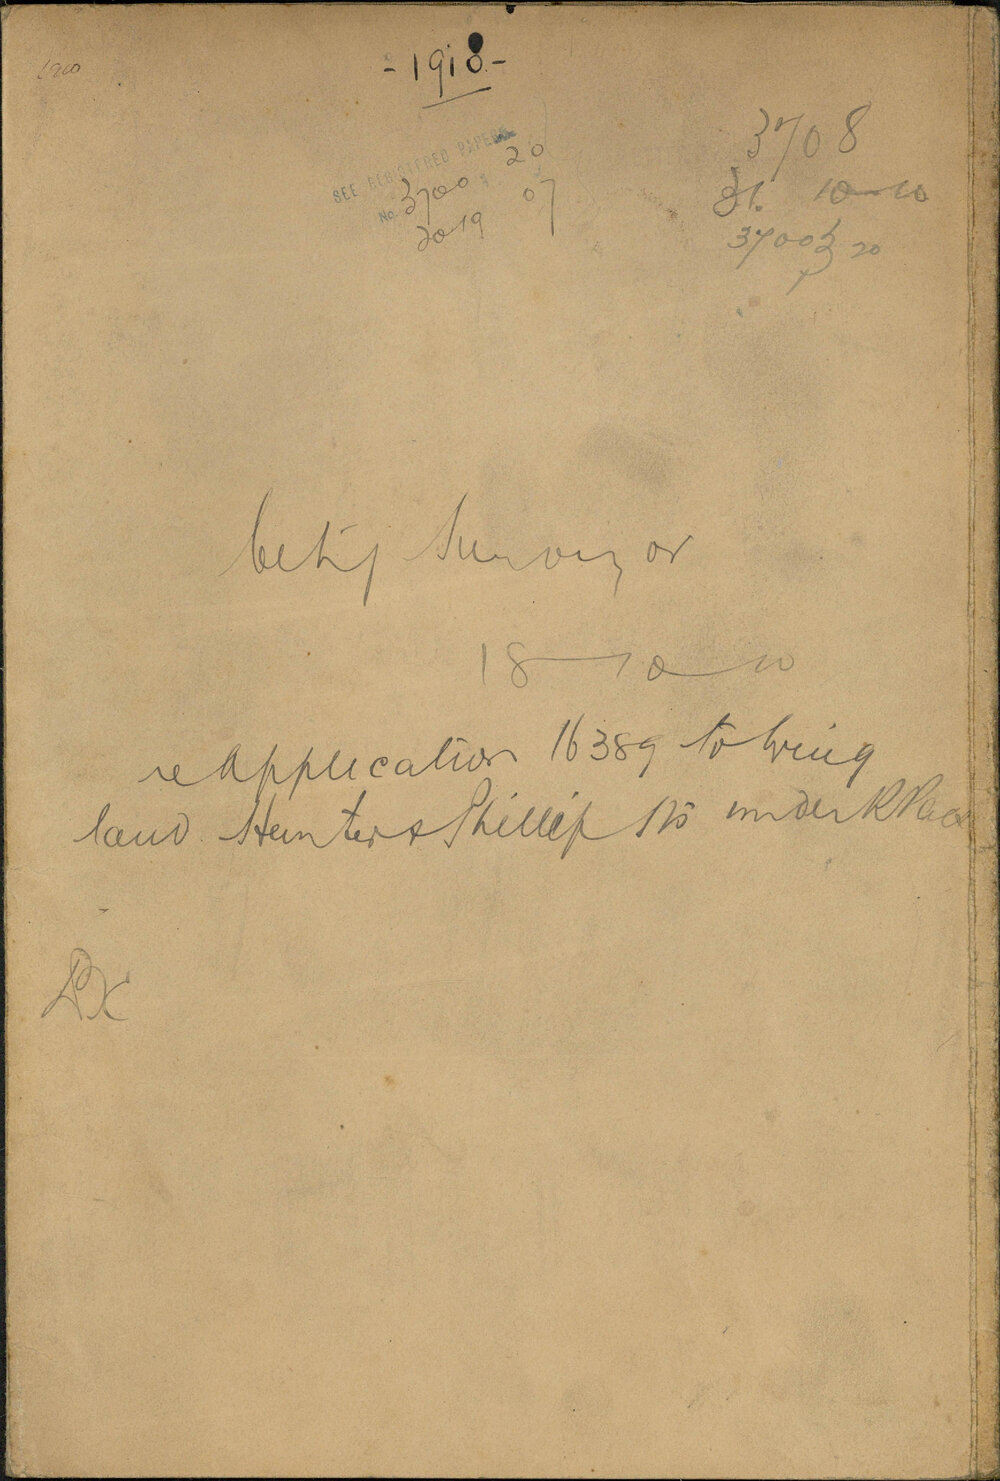 1910
- 1918 -
3708
SEE REGISTERED PAPERS
No. 3700 20
2019 07
31. 10 — 10
3700 3/20
City Surveyor
18 — 10 — 10
re Application 16389 to bring
land Hunter & Phillip Sts under R P Act